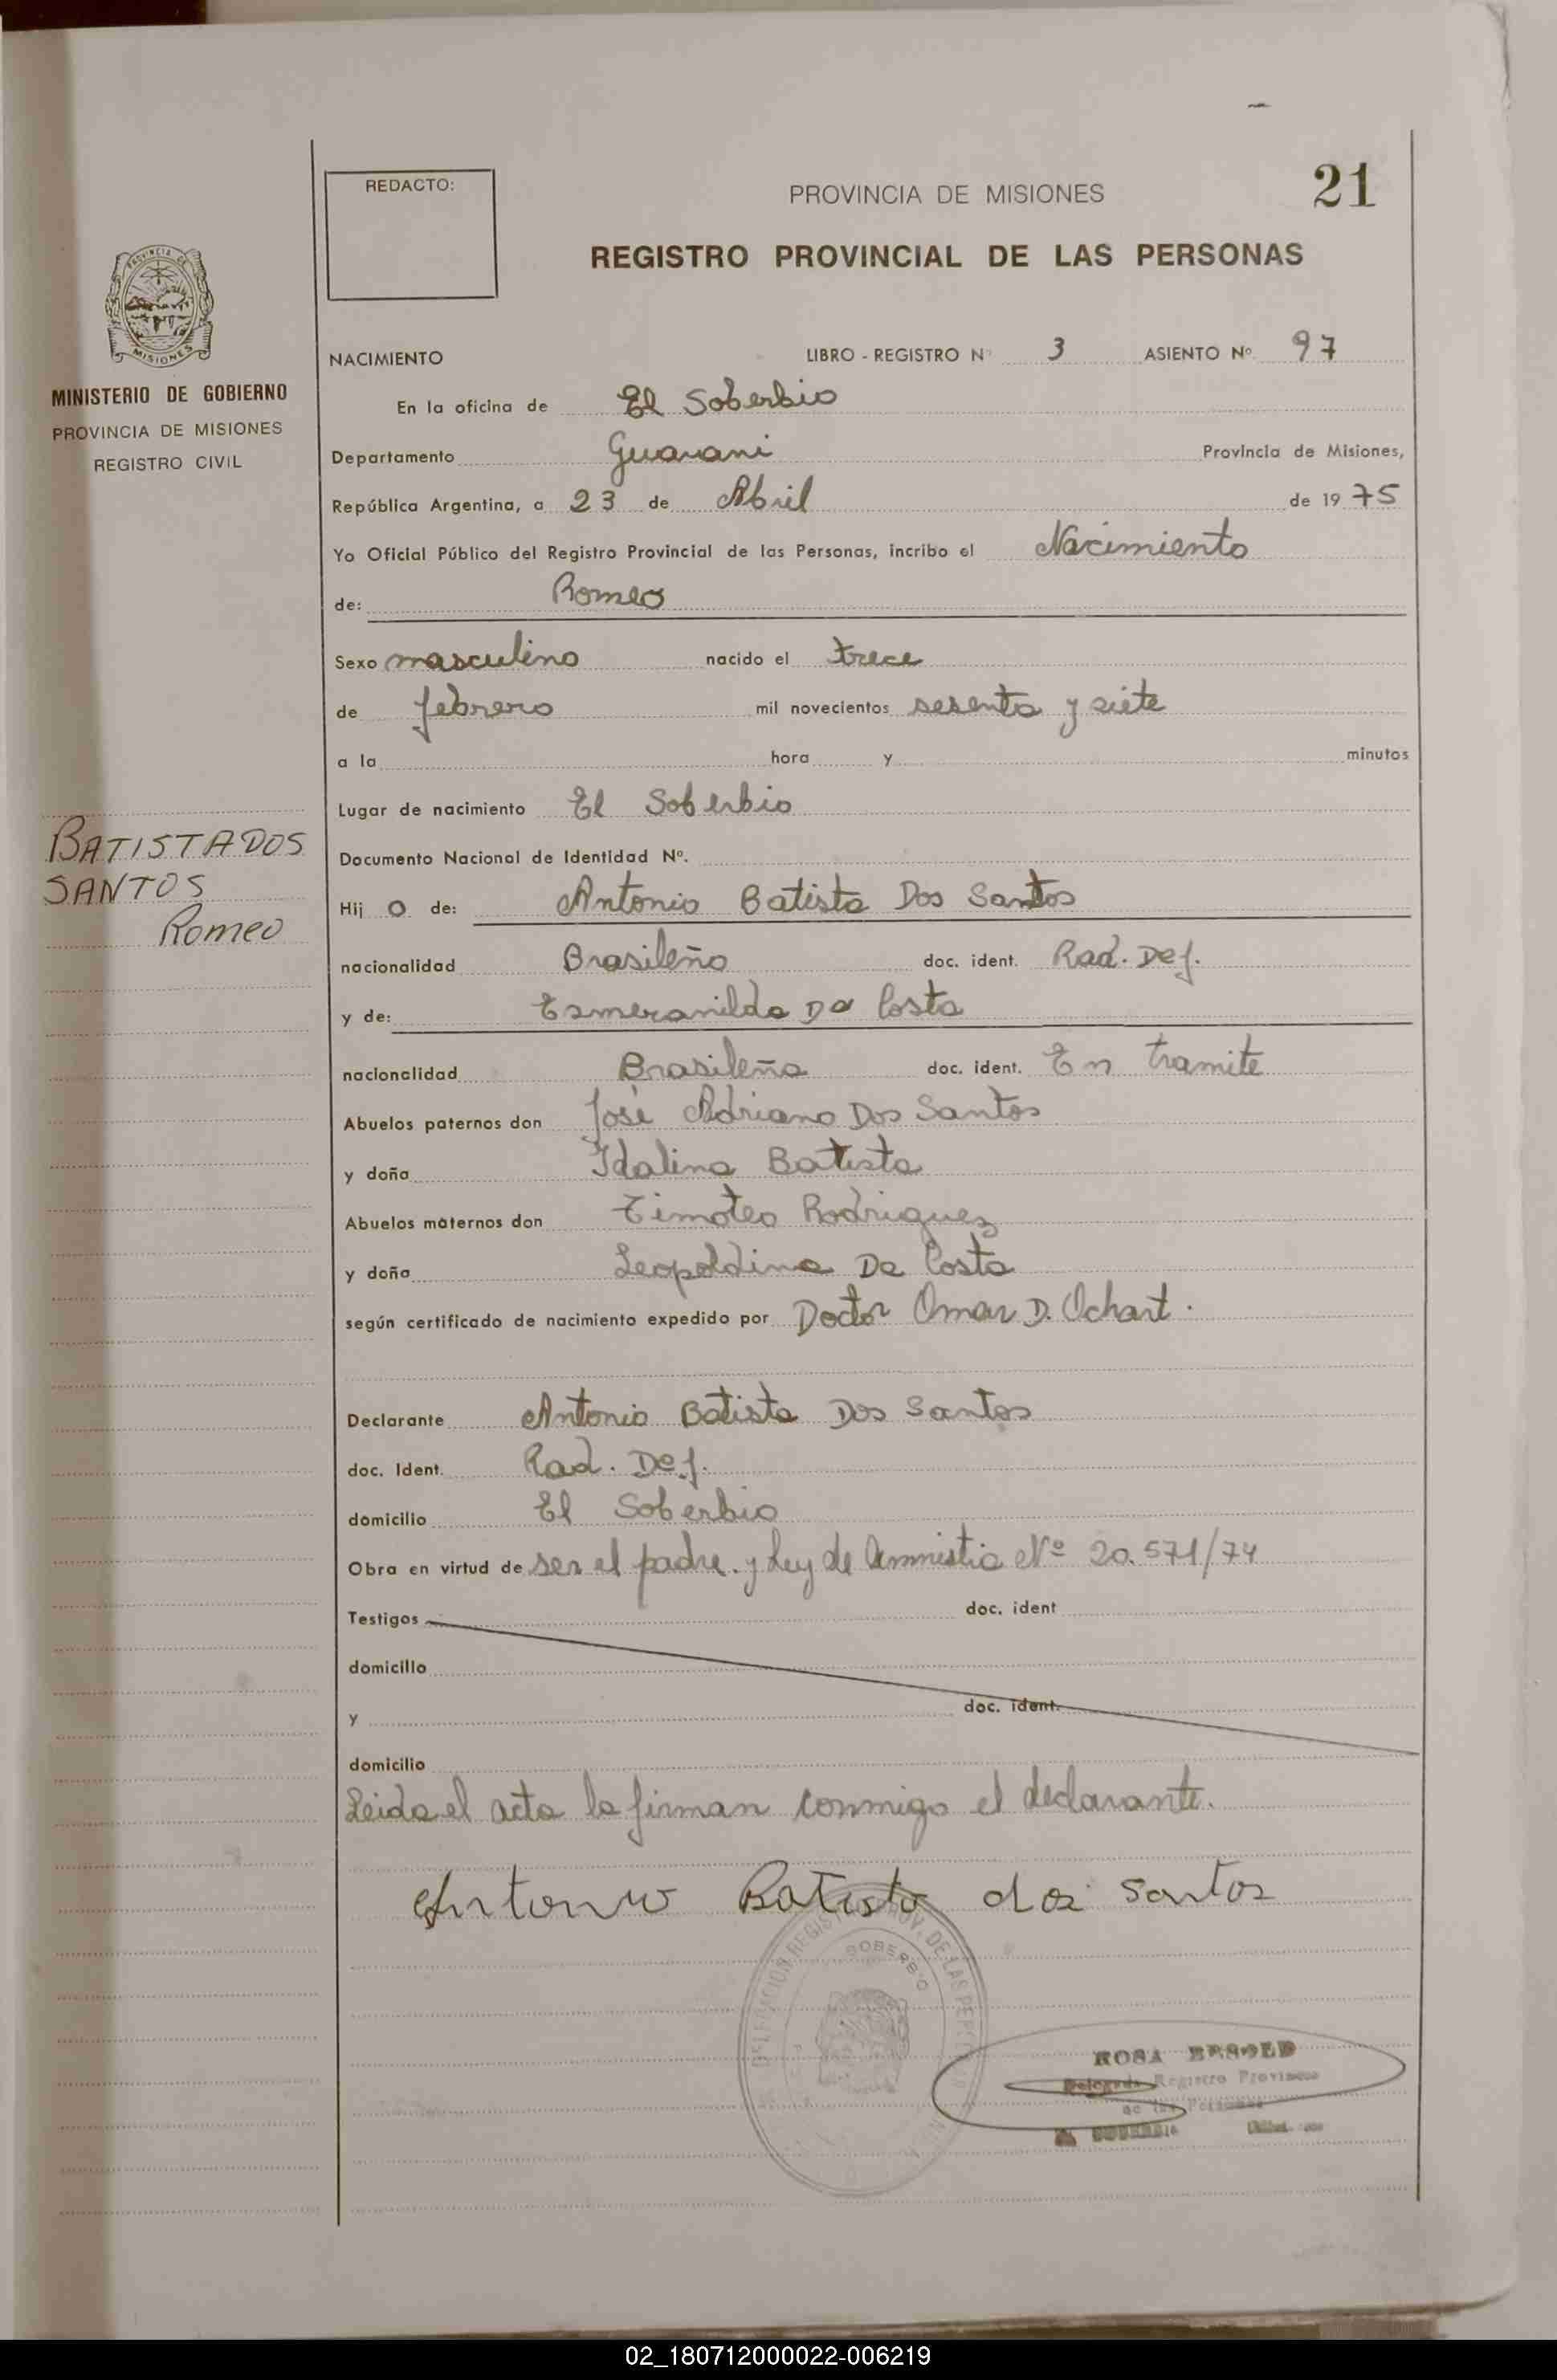 REDACTO:
PROVINCIA DE MISIONES
21
REGISTRO PROVINCIAL DE LAS PERSONAS
PROVINCIA DE
MISIONES
MINISTERIO DE GOBIERNO
PROVINCIA DE MISIONES
REGISTRO CIVIL
NACIMIENTO LIBRO - REGISTRO Nº 3 ASIENTO Nº 97
En la oficina de El Soberbio
Departamento Guarani Provincia de Misiones,
República Argentina, a 23 de Abril de 1975
Yo Oficial Público del Registro Provincial de las Personas, incribo el Nacimiento
de: Romeo
Sexo masculino nacido el trece
de febrero mil novecientos sesenta y siete
a la hora y minutos
Lugar de nacimiento El Soberbio
BATISTA DOS
SANTOS
Romeo
Documento Nacional de Identidad Nº.
Hij o de: Antonio Batista Dos Santos
nacionalidad Brasileño doc. ident. Rad. Def.
y de: Esmeranilda Da Costa
nacionalidad Brasileña doc. ident. En tramite
Abuelos paternos don José Adriano Dos Santos
y doña Idalina Batista
Abuelos maternos don Timoteo Rodriguez
y doña Leopoldina Da Costa
según certificado de nacimiento expedido por Doctor Omar D. Ochart.
Declarante Antonio Batista Dos Santos
doc. Ident. Rad. Def.
domicilio El Soberbio
Obra en virtud de ser el padre. y Ley de Amnistia Nº 20.571/74
Testigos doc. ident
domicilio
y doc. ident.
domicilio
Leida el acta la firman conmigo el declarante.
Antonio Batista dos Santos
SOBERBIO
ROSA
Delegada Registro Provincial
de las Personas
EL SOBERBIO
02_180712000022-006219